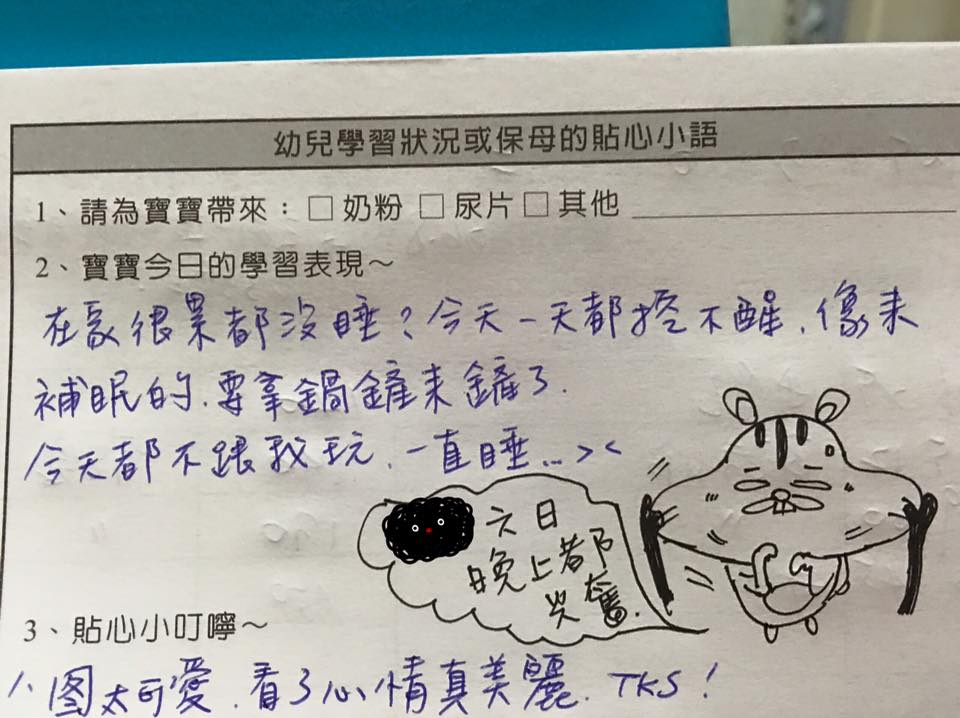 幼兒學習狀況或保母的貼心小語
1、請為寶寶帶來：□ 奶粉 □ 尿片 □ 其他
2、寶寶今日的學習表現～
在家很累都沒睡？今天一天都挖不醒、像來
補眠的、要拿鍋鏟來鏟了.
今天都不跟我玩、一直睡...><
六日
晚上都
哭奮.
3、貼心小叮嚀～
1、图太可愛、看了心情真美麗、TKS！